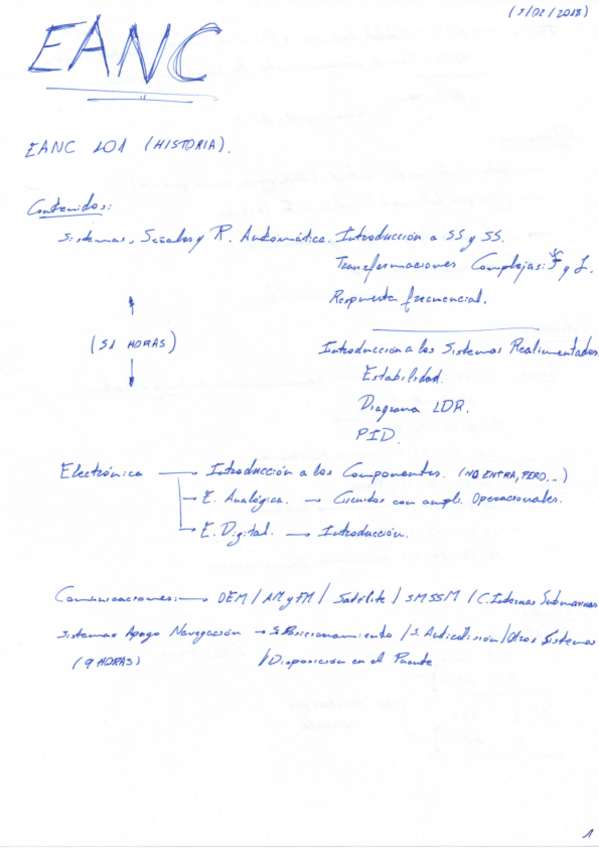 (5/02/2018)
EANC
EANC 101 (HISTORIA).
Contenidos:
Sistemas, Señales y R. Automática. Introducción a SS y SS.
Transformaciones Complejas: F y L.
Respuesta frecuencial.
(51 HORAS)
Introducción a los Sistemas Realimentados
Estabilidad.
Diagrama LDR.
PID.
Electrónica → Introducción a los Componentes. (NO ENTRA, PERO...)
→ E. Analógica. → Circuitos con ampli. Operacionales.
→ E. Digital. → Introducción.
Comunicaciones: → OEM / AM y FM / Satélite / SMSSM / C. Internas Submarinas
Sistemas Apoyo Navegación → S. Posicionamiento / S. Anticolisión / Otros Sistemas
(9 HORAS) / Disposición en el Puente
1